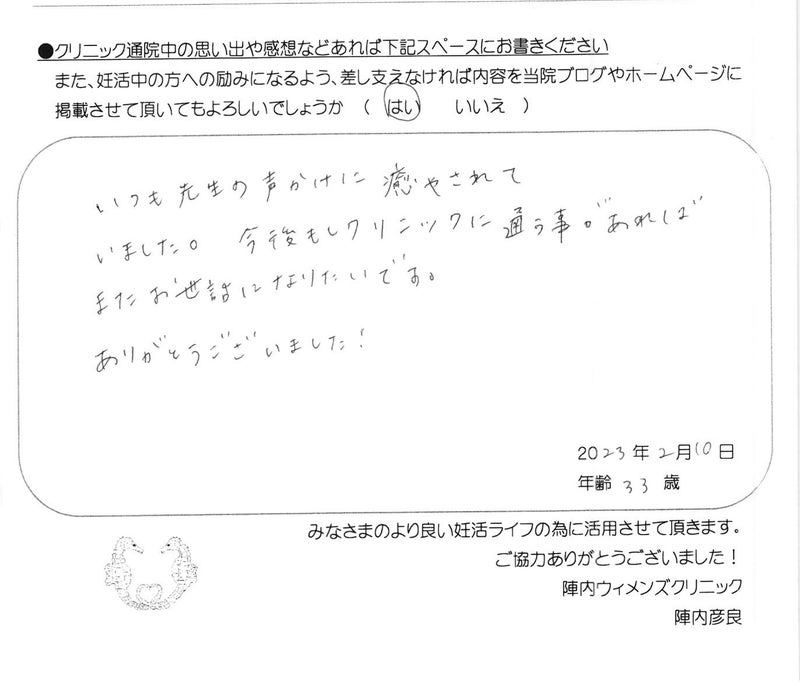 ●クリニック通院中の思い出や感想などあれば下記スペースにお書きください
また、妊活中の方への励みになるよう、差し支えなければ内容を当院ブログやホームページに
掲載させて頂いてもよろしいでしょうか （ はい いいえ ）
いつも先生の声かけに癒やされて
いました。今後もしクリニックに通う事があれば
またお世話になりたいです。
ありがとうございました!
2023年2月10日
年齢 33 歳
みなさまのより良い妊活ライフの為に活用させて頂きます。
ご協力ありがとうございました！
陣内ウィメンズクリニック
陣内彦良